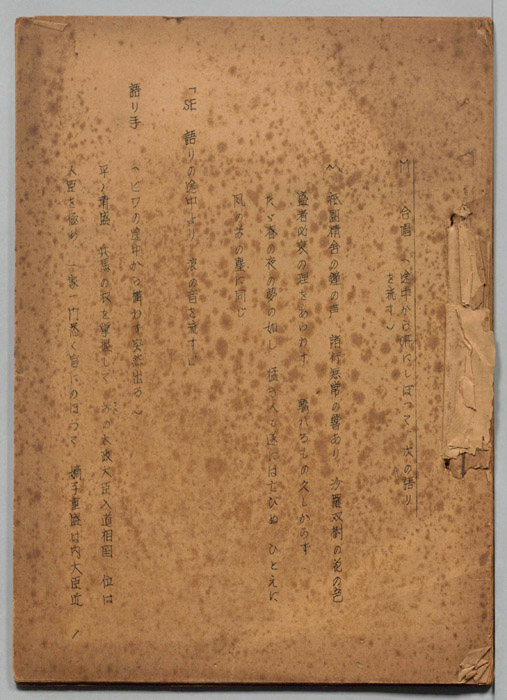 M 合唱 (途中から 次の語り
を流す)
祇園精舎の鐘の声 諸行無常の響あり 沙羅双樹の花の色
盛者必衰の理をあらわす 驕れるもの久しからず
たゞ春の夜の夢の如し 猛き人も遂にはほろびぬ ひとえに
風の前の塵に同じ
「SE 語りの途中より 波の音を流す」
語り手 (ビワの途中から 突然出る)
平ノ清盛 兵馬の权を掌握して 太政大臣入道相国 位は
人臣を極め 一家一門悉く官にのぼつて 嫡子重盛は内大臣近